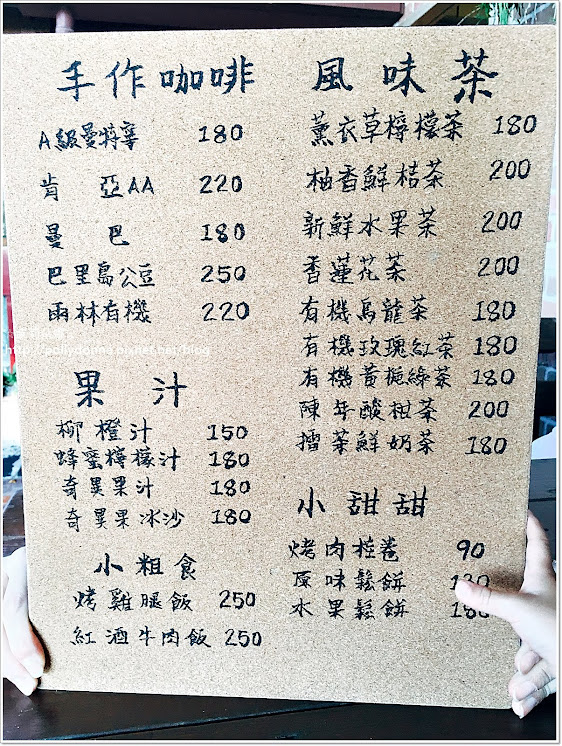 手作咖啡
A級曼特寧 180
肯亞AA 220
曼巴 180
巴里島公豆 250
雨林有機 220
果汁
柳橙汁 150
蜂蜜檸檬汁 180
奇異果汁 180
奇異果冰沙 180
小粗食
烤雞腿飯 250
紅酒牛肉飯 250
風味茶
薰衣草檸檬茶 180
柚香鮮桔茶 200
新鮮水果茶 200
香蓮花茶 200
有機烏龍茶 180
有機玫瑰紅茶 180
有機黃梔綠茶 180
陳年酸柑茶 200
擂茶鮮奶茶 180
小甜甜
烤肉捲 90
原味鬆餅
水果鬆餅